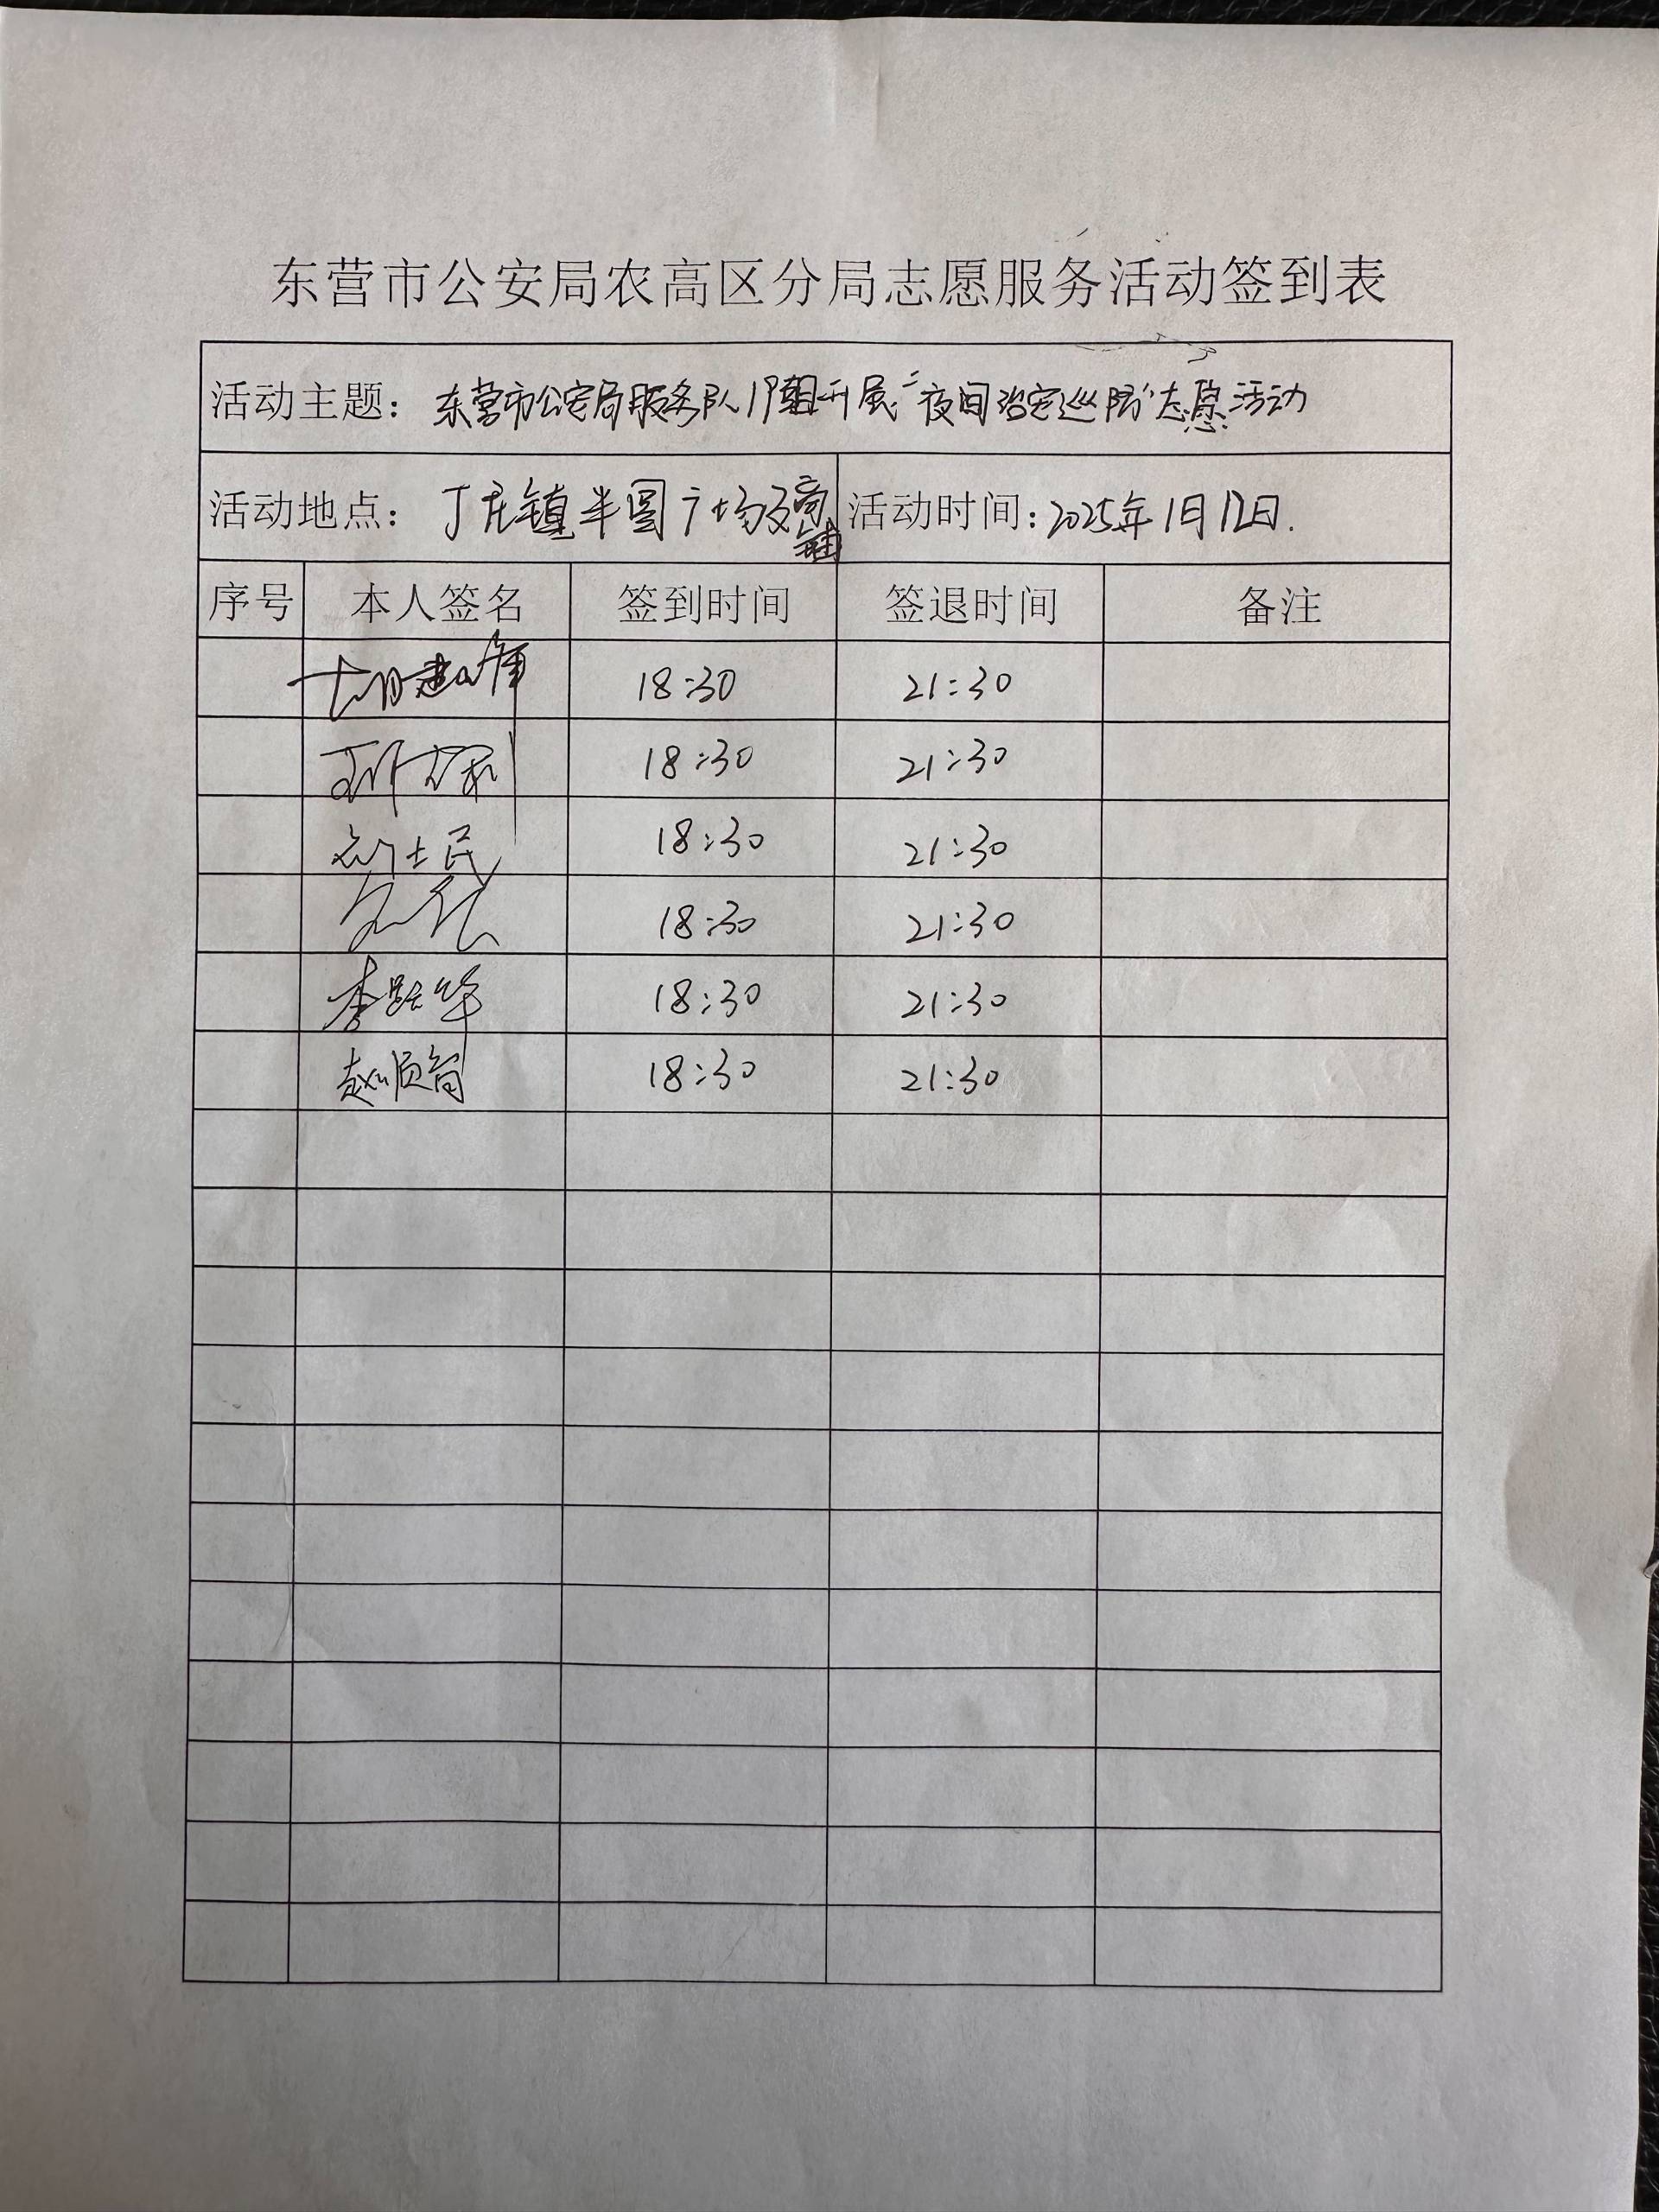 东营市公安局农高区分局志愿服务活动签到表
活动主题：东营市公安局服务队1月12日开展“夜间治安巡防”志愿活动
活动地点：丁庄镇半圆广场及商铺 活动时间：2025年1月12日.
序号 本人签名 签到时间 签退时间 备注
18:30 21:30
18:30 21:30
刘士民 18:30 21:30
18:30 21:30
李跃华 18:30 21:30
赵顺 18:30 21:30